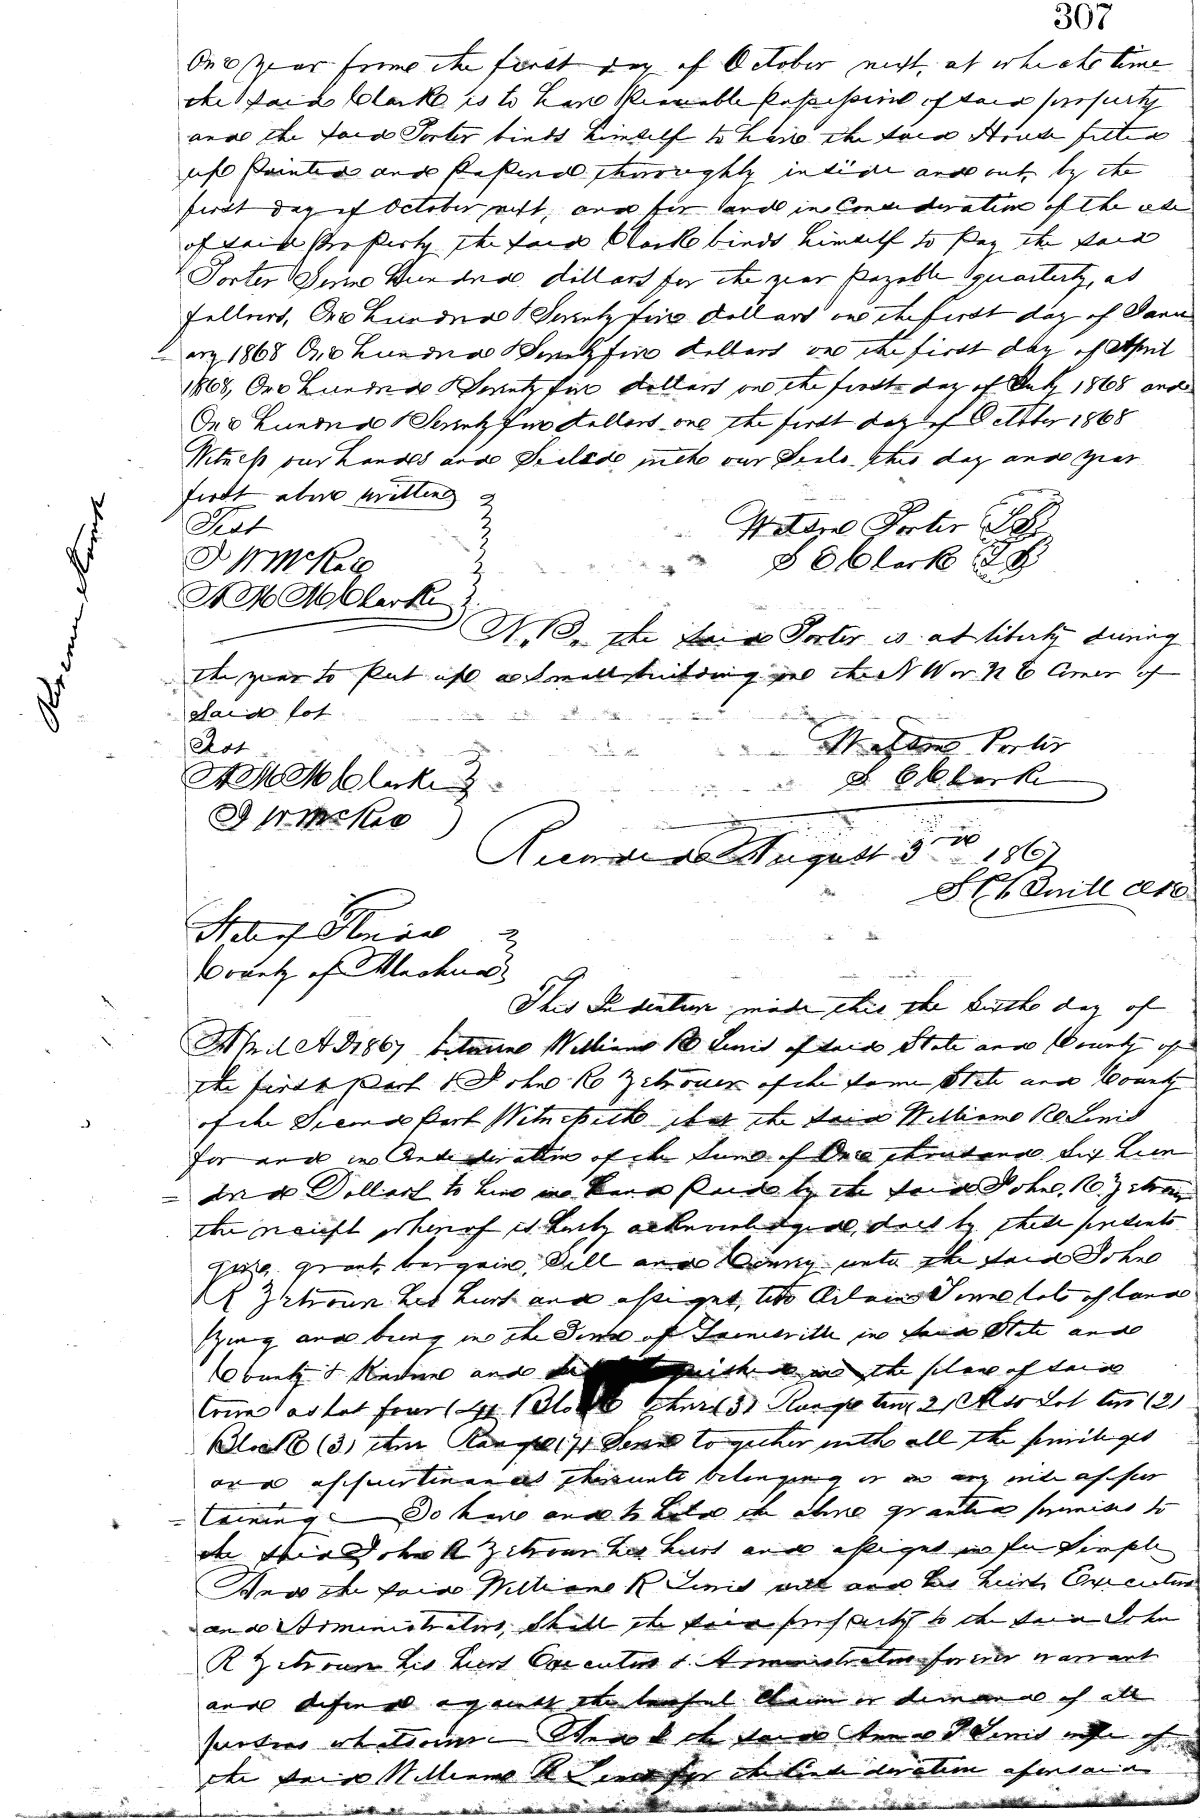 307
One year from the first day of October next, at which time
the said Clark is to have Peaceable Possession of said property
and the said Porter binds himself to have the said House fitted
up Painted and Papered thoroughly inside and out, by the
first day of October next, and for and in Consideration of the use
of said Property the said Clark binds himself to Pay the said
Porter Seven Hundred dollars for the year Payable quarterly, as
follows, One hundred & Seventy five dollars on the first day of Janu
ary 1868 One hundred & Seventy five dollars on the first day of April
1868, One hundred & Seventy five dollars on the first day of July 1868 and
One hundred & Seventy five dollars on the first day of October 1868
Witness our hands and Sealed with our Seals this day and year
first above written
Test
Watson Porter LS
J W McKae
S E Clark LS
A M McClarke
N.B. the said Porter is at liberty during
the year to Put up a small building on the N W or N E Corner of
Said lot
Test
Watson Porter
A M McClarke
S E Clarke
J W McKae
Recorded August 3rd 1867
Revenue Stamp
State of Florida
County of Alachua
This Indenture made this the Sixth day of
April A D 1867 between William R Lewis of said State and County of
the first part & John R Zetrouer of the same State and County
of the Second Part Witnesseth that the said William R Lewis
for and in Consideration of the Sum of One thousand Six hun
dred Dollars to him in hand Paid by the said John R Zetrouer
the receipt whereof is hereby acknowledged, does by these presents
give, grant, bargain, Sell and Convey unto the said John
R Zetrouer his heirs and assigns, two Certain Town lots of land
lying and being in the Town of Gainesville in said State and
County & Known and in the plan of said
town as Lot four (4) Block three (3) Range two (2) Also Lot two (2)
Block (3) three Range (7) Seven together with all the privileges
and appurtenances thereunto belonging or in any wise apper
taining To have and to hold the above granted premises to
the said John R Zetrouer his heirs and assigns in fee Simple
And the said William R Lewis will and his heirs, Executors
and Administrators, Shall the said property to the said John
R Zetrouer his heirs Executors & Administrators forever warrant
and defend against the lawful claim or demand of all
persons whatsoever And I the said Anna P Lewis wife of
the said William R Lewis for the Consideration aforesaid